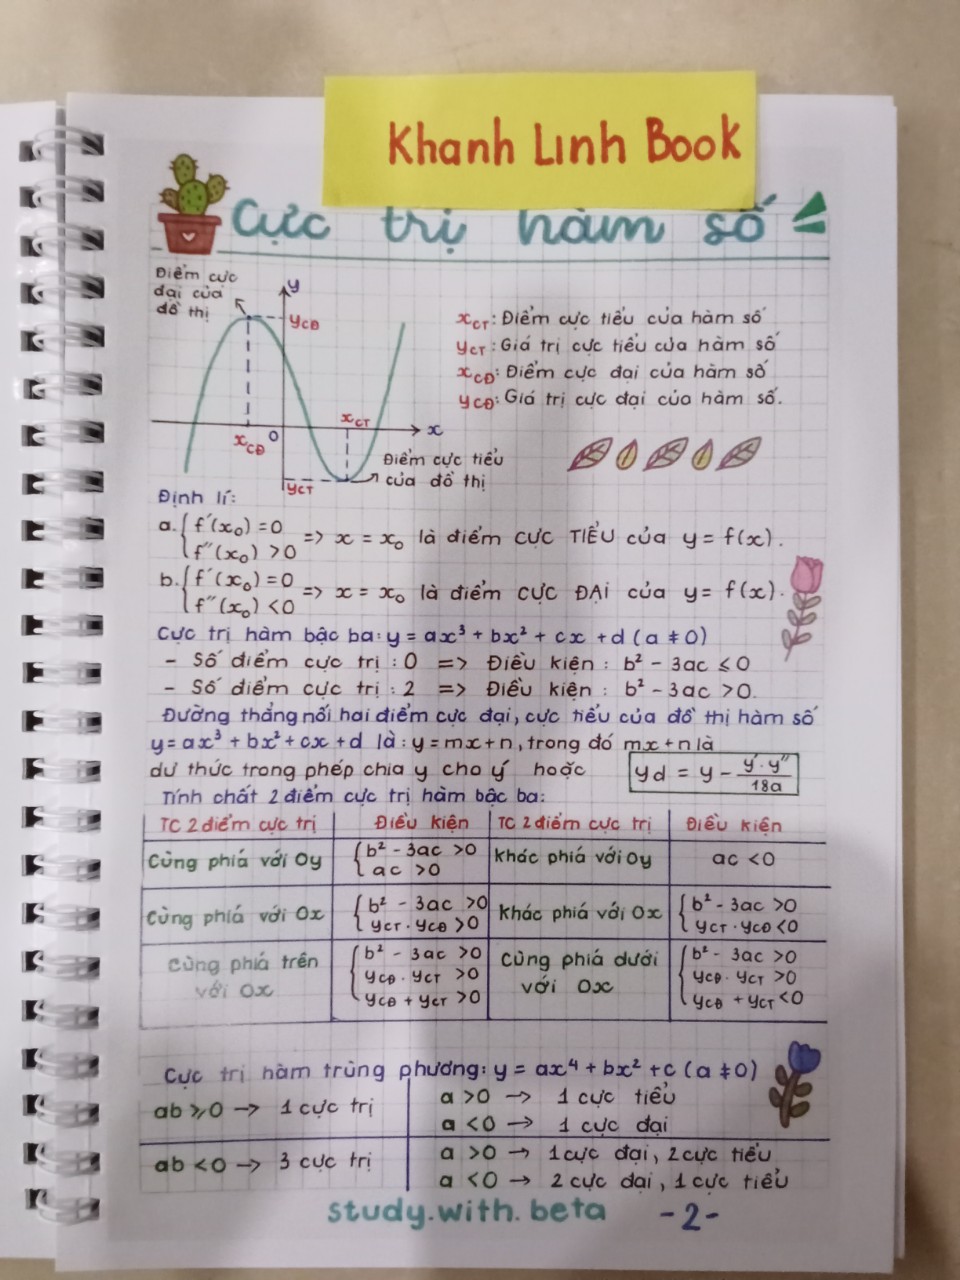 Khanh Linh Book
Cực trị hàm số
Điểm cực
đại của
đồ thị
y
yCĐ
xCT
O
x
xCĐ
Điểm cực tiểu
của đồ thị
yCT
xCT: Điểm cực tiểu của hàm số
yCT: Giá trị cực tiểu của hàm số
xCĐ: Điểm cực đại của hàm số
yCĐ: Giá trị cực đại của hàm số.
Định lí:
a. { f'(x₀) = 0
f''(x₀) > 0 => x = x₀ là điểm cực TIỂU của y = f(x).
b. { f'(x₀) = 0
f''(x₀) < 0 => x = x₀ là điểm CỰC ĐẠI của y = f(x).
Cực trị hàm bậc ba: y = ax³ + bx² + cx + d (a ≠ 0)
- Số điểm cực trị : 0 => Điều kiện : b² - 3ac ≤ 0
- Số điểm cực trị : 2 => Điều kiện : b² - 3ac > 0.
Đường thẳng nối hai điểm cực đại, cực tiểu của đồ thị hàm số
y = ax³ + bx² + cx + d là : y = mx + n, trong đó mx + n là
dư thức trong phép chia y cho y' hoặc yd = y - y'.y''/18a
Tính chất 2 điểm cực trị hàm bậc ba:
TC 2 điểm cực trị Điều kiện TC 2 điểm cực trị Điều kiện
Cùng phiá với Oy { b² - 3ac > 0
ac > 0 khác phiá với Oy ac < 0
Cùng phiá với Ox { b² - 3ac > 0
yCT . yCĐ > 0 khác phiá với Ox { b² - 3ac > 0
yCT . yCĐ < 0
Cùng phiá trên
với Ox { b² - 3ac > 0
yCĐ . yCT > 0
yCĐ + yCT > 0 Cùng phiá dưới
với Ox { b² - 3ac > 0
yCĐ . yCT > 0
yCĐ + yCT < 0
Cực trị hàm trùng phương: y = ax⁴ + bx² + c (a ≠ 0)
ab ⩾ 0 → 1 cực trị
a > 0 → 1 cực tiểu
a < 0 → 1 cực đại
ab < 0 → 3 cực trị
a > 0 → 1 cực đại, 2 cực tiểu
a < 0 → 2 cực đại, 1 cực tiểu
study.with.beta -2-